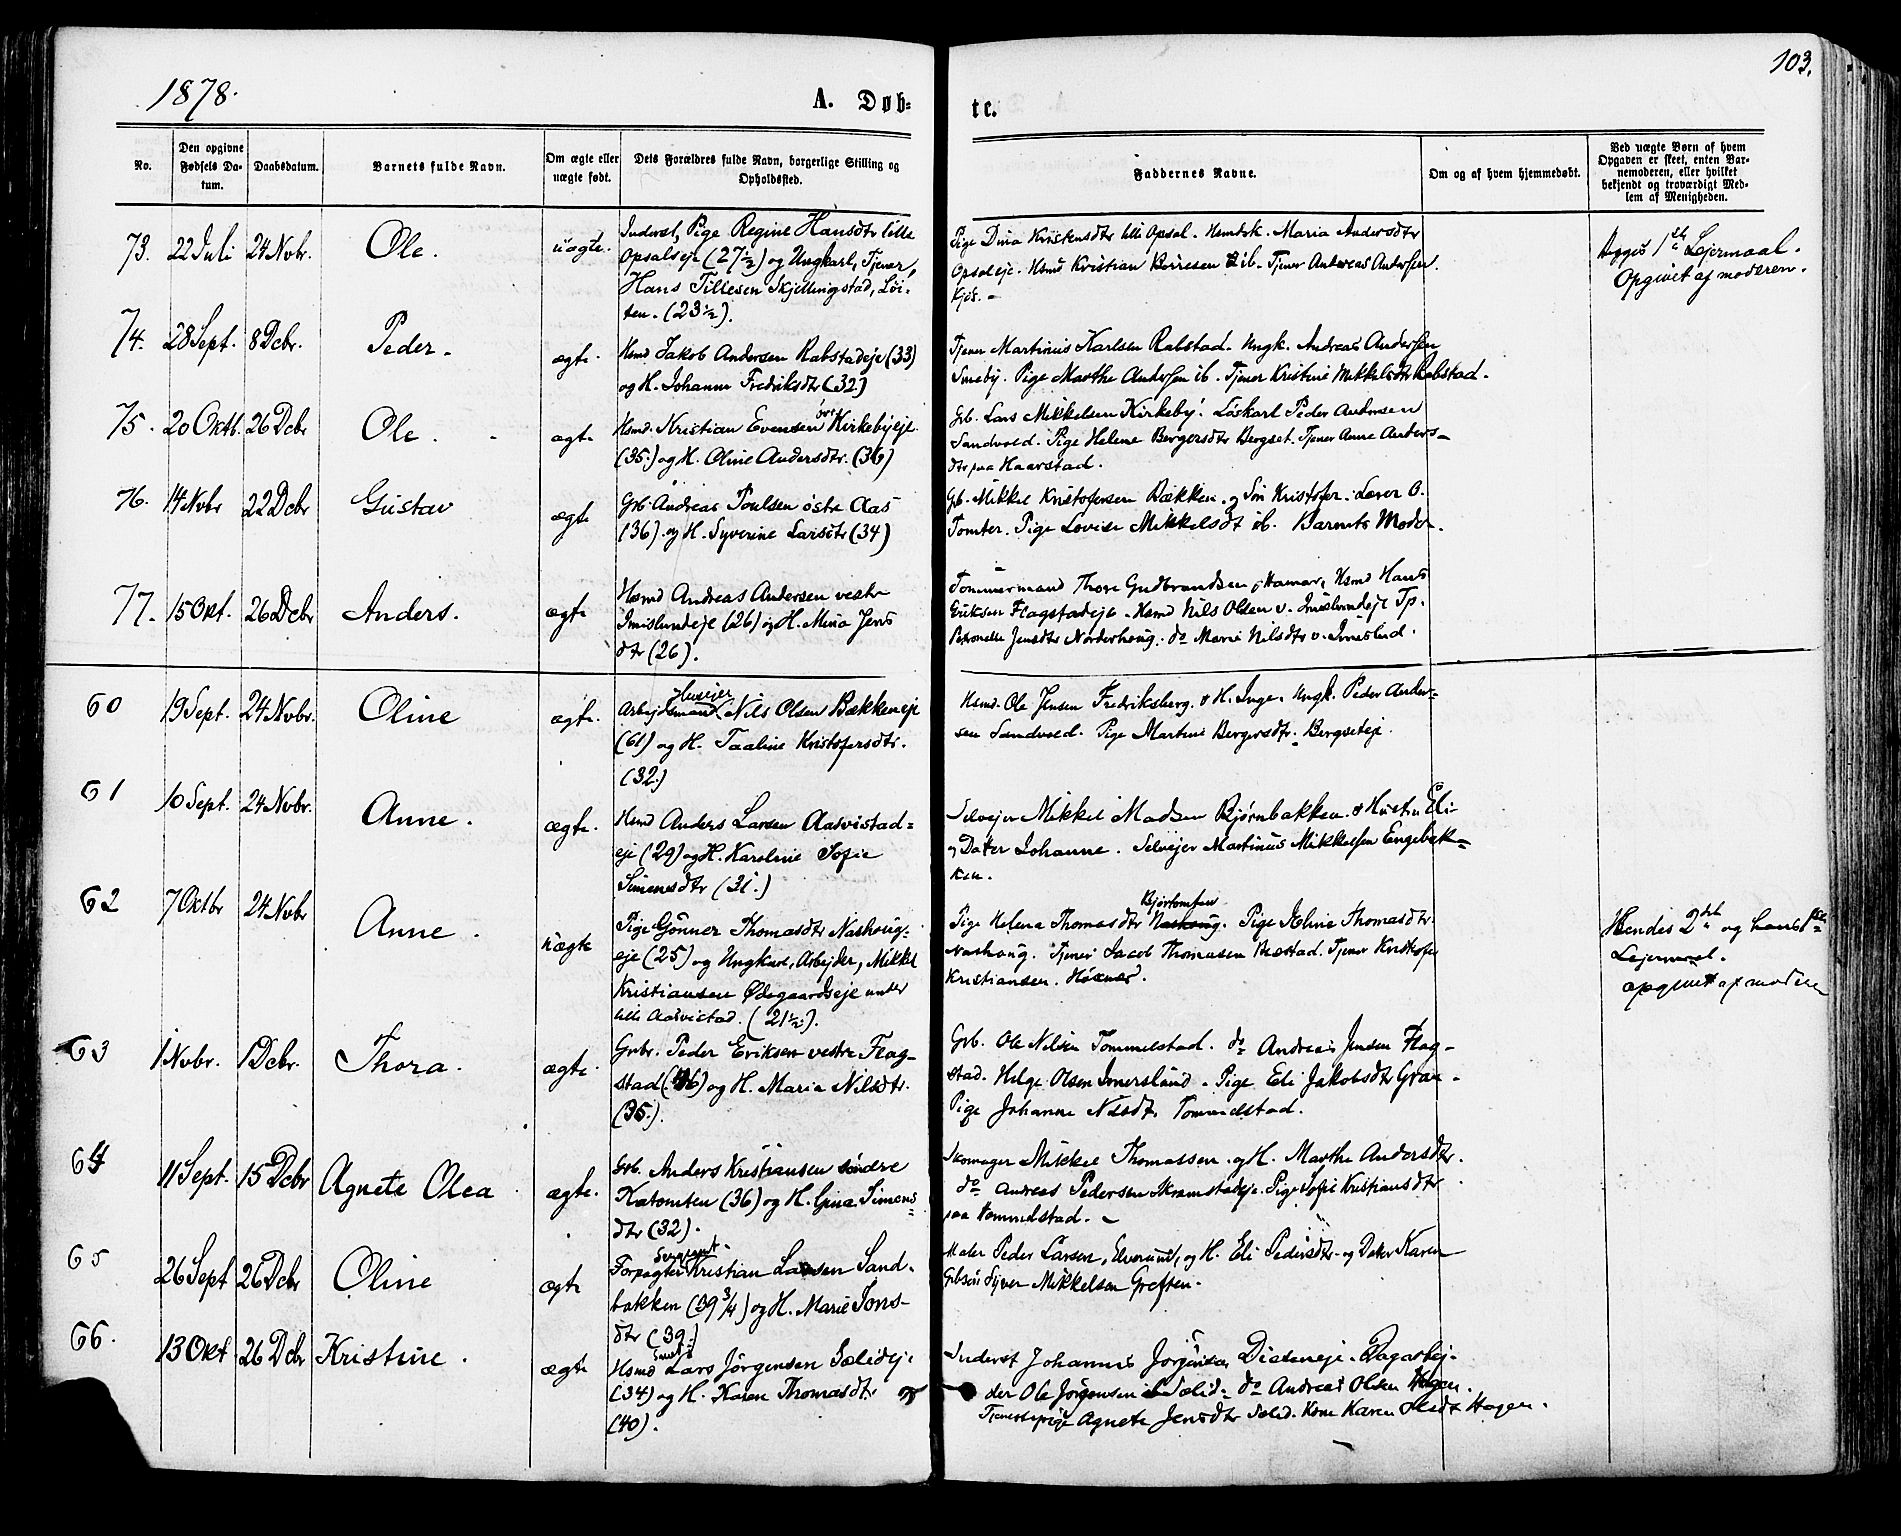 1878.
A. Døb-
te.
103.
No.
Den opgivne Fødsels Datum.
Daabsdatum.
Barnets fulde Navn.
Om ægte eller uægte født.
Dets Forældres fulde Navn, borgerlige Stilling og Opholdssted.
Faddernes Navne.
Om og af hvem hjemmedøbt.
Ved uægte Børn af hvem Opgaven er skeet, enten Barnemoderen, eller hvilket bekjendt og troværdigt Medlem af Menigheden.
73. 22 Juli 24 Novbr. Ole. uægte.
Inderst, Pige Regine Hansdtr lille
Opsalseje (27½) og Ungkarl, Tjener,
Hans Tillesen Skjellingstad, Løi-
ten. (23½).
Pige Dina Kristensdtr lille Opsal. Maria Andersdtr
Opsaleje. Hsmd Kristian Børresen ib. Tjener Andreas Andersen
Begges 1ste Lejermaal.
Opgivet af moderen.
74. 28 Sept. 8 Dcbr. Peder. ægte.
Hsmd Jakob Andersen Rabstadeje (33)
og H. Johanne Fredriksdtr (32)
Tjener Martinus Karlsen Rabstad. Ungk. Andreas Andersen
Smeby. Pige Marthe Andersen ib. Tjener Kristine Mikkelsdtr Rabstad.
75. 20 Oktb. 26 Dcbr Ole. ægte
Hsmd. Kristian Evensen Kirkebyeje
(35.) og H. Oline Andersdtr. (36)
Grb. Lars Mikkelsen Kirkeby. Løskarl Peder Andersen
Sandvold. Pige Helene Bergersdtr Bergset. Tjener Anne Anders-
dtr paa Haarstad.
76. 14 Novbr 22 Dcbr Gustav ægte
Grb. Andreas Poulsen østre Aas
(36). og H. Syverine Larsdtr (34)
Grb. Mikkel Kristofersen Bækken. og Søn Kristofer. Lærer O.
Tomter. Pige Lovise Mikkelsdt ib. Barnets Moder.
77. 15 Okt. 26 Dcbr Anders. ægte
Hsmd Andreas Andersen vestre
Imislundeje (26) og H. Mina Jens
dtr (26).
Tømmermand Thore Gudbrandsen, Hamar, Hsmd Hans
Eriksen Flagstadeje. Hsmd Nils Olsen v. Imislundeje Tp.
Petronelle Jensdtr Norderhoug. do Marie Nilsdtr v. Imislund.
60 19 Sept. 24 Novbr. Oline ægte.
Husejer
Arbejdsmand Nils Olsen Bækkeneje
(61) og H. Taaline Kristofersdtr.
(32.)
Hsmd. Ole Jensen Fredriksberg. & H. Inge. Ungk. Peder Ander-
sen Sandvold. Pige Martine Bergersdtr. Bergseteje.
61 10 Sept. 24 Novbr. Anne. ægte.
Hsmd Anders Larsen Aasvistad-
eje (29) og H. Karoline Sofie
Simensdtr (31.)
Selvejer Mikkel Madsen Bjørnbakken. & Hustru Eli
og Datter Johanne. Selvejer Martinus Mikkelsen Engebak-
ken.
62 7 Oktbr 24 Novbr Anne. uægte
Pige Gönner Thomasdtr Nashoug-
eje (25) og Ungkarl, Arbejder, Mikkel
Kristiansen Ødegaardseje under
lille Aasvistad. (21½).
Pige Helena Thomasdtr Nashoug. Pige Thomasdtr.
Nashoug. Tjener Jacob Thomasen Bæstad. Tjener Kristofer
Kristiansen. Hösnes.
Hendes 2det og hans 1ste
Lejermaal.
opgivet af moderen
63 1 Novbr. 1 Dcbr. Thora. ægte.
Grbr. Peder Eriksen vestre Flag-
stad (36) og H. Maria Nilsdtr.
(35.)
Grb. Ole Nilsen Tommelstad. do Andreas Jensen Flag-
stad. Helge Olsen Imerslund. Pige Eli Jakobsdtr Gran-
Pige Johanne Nilsdtr Tommelstad.
64 11 Sept. 15 Dcbr Agnete Olea ægte.
Grb. Anders Kristiansen søndre
Kætomten (36) og H. Gina Simens-
dtr (32).
Skomager Mikkel Thomassen. og H. Marthe Andersdtr.
do Andreas Pedersen Skramstadeje. Pige Sofie Kristiansdtr
paa Tommelstad.
65 26 Sept 26 Dcbr Oline ægte
Sergeant
Forpagter Kristian Larsen Sand-
bakken (39¾) og H. Marie Jons-
dtr (39.)
Maler Peder Larsen, Elverum, og H. Eli Pedersdtr. og Datter Karen
Grbsøn Syver Mikkelsen Greften.
66. 13 Okt 26 Dcbr Kristine. ægte
Hsmd Lars Jörgensen Sælideje
(34) og H. Karen Thomasdtr
(40).
Inderst Johannes Jorgensen Disteneje. Dagarbej-
der Ole Jörgensen Sælid. do Andreas Olsen Hagen.
Tjenestepige Agnete Jensdtr Sælid. Kone Karen Olsdt Hagen.